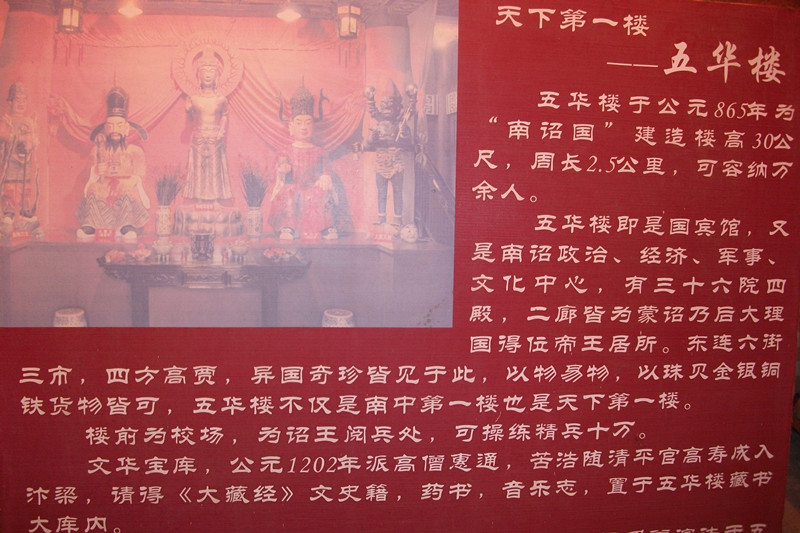 天下第一楼
——五华楼
五华楼于公元865年为
“南诏国”建造楼高30公
尺，周长2.5公里，可容纳万
余人。
五华楼即是国宾馆，又
是南诏政治、经济、军事、
文化中心，有三十六院四
殿，二廊皆为蒙诏乃后大理
国得位帝王居所。东连六街
三市，四方高贾，异国奇珍皆见于此，以物易物，以珠贝金银铜
铁货物皆可，五华楼不仅是南中第一楼也是天下第一楼。
楼前为校场，为诏王阅兵处，可操练精兵十万。
文华宝库，公元1202年派高僧惠通，苦浩随清平官高寿成入
汴梁，请得《大藏经》文史籍，药书，音乐志，置于五华楼藏书
大库内。